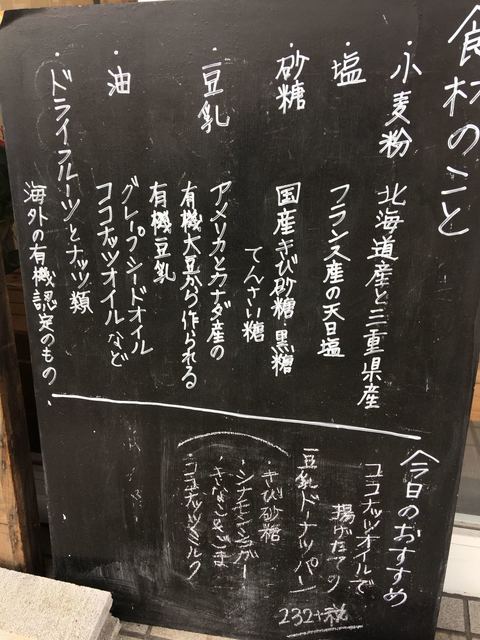 食材のこと
・小麦粉 北海道産と三重県産
・塩 フランス産の天日塩
・砂糖 国産きび砂糖・黒糖
てんさい糖
・豆乳 アメリカとカナダ産の
有機大豆から作られる
有機豆乳
・油 グレープシードオイル
ココナッツオイルなど
・ドライフルーツとナッツ類
海外の有機認定のもの、
今日のおすすめ
ココナッツオイルで
揚げたての
豆乳ドーナッツパン
・きび砂糖
・シナモンシュガー
・きなこ&ごま
・ココナッツミルク
232+税